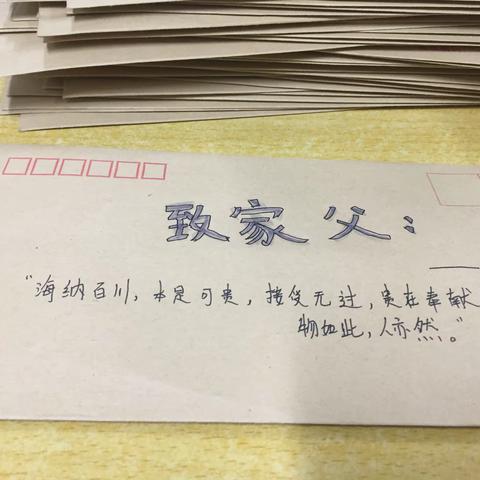 致家父：
“海纳百川，本是可贵，接受无过，贵在奉献
物如此，人亦然。”